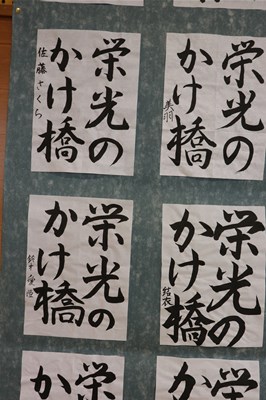 栄光の
かけ橋
佐藤さくら
栄光の
かけ橋
美羽
栄光の
かけ橋
栄光の
かけ橋
結衣
栄
か
栄
か